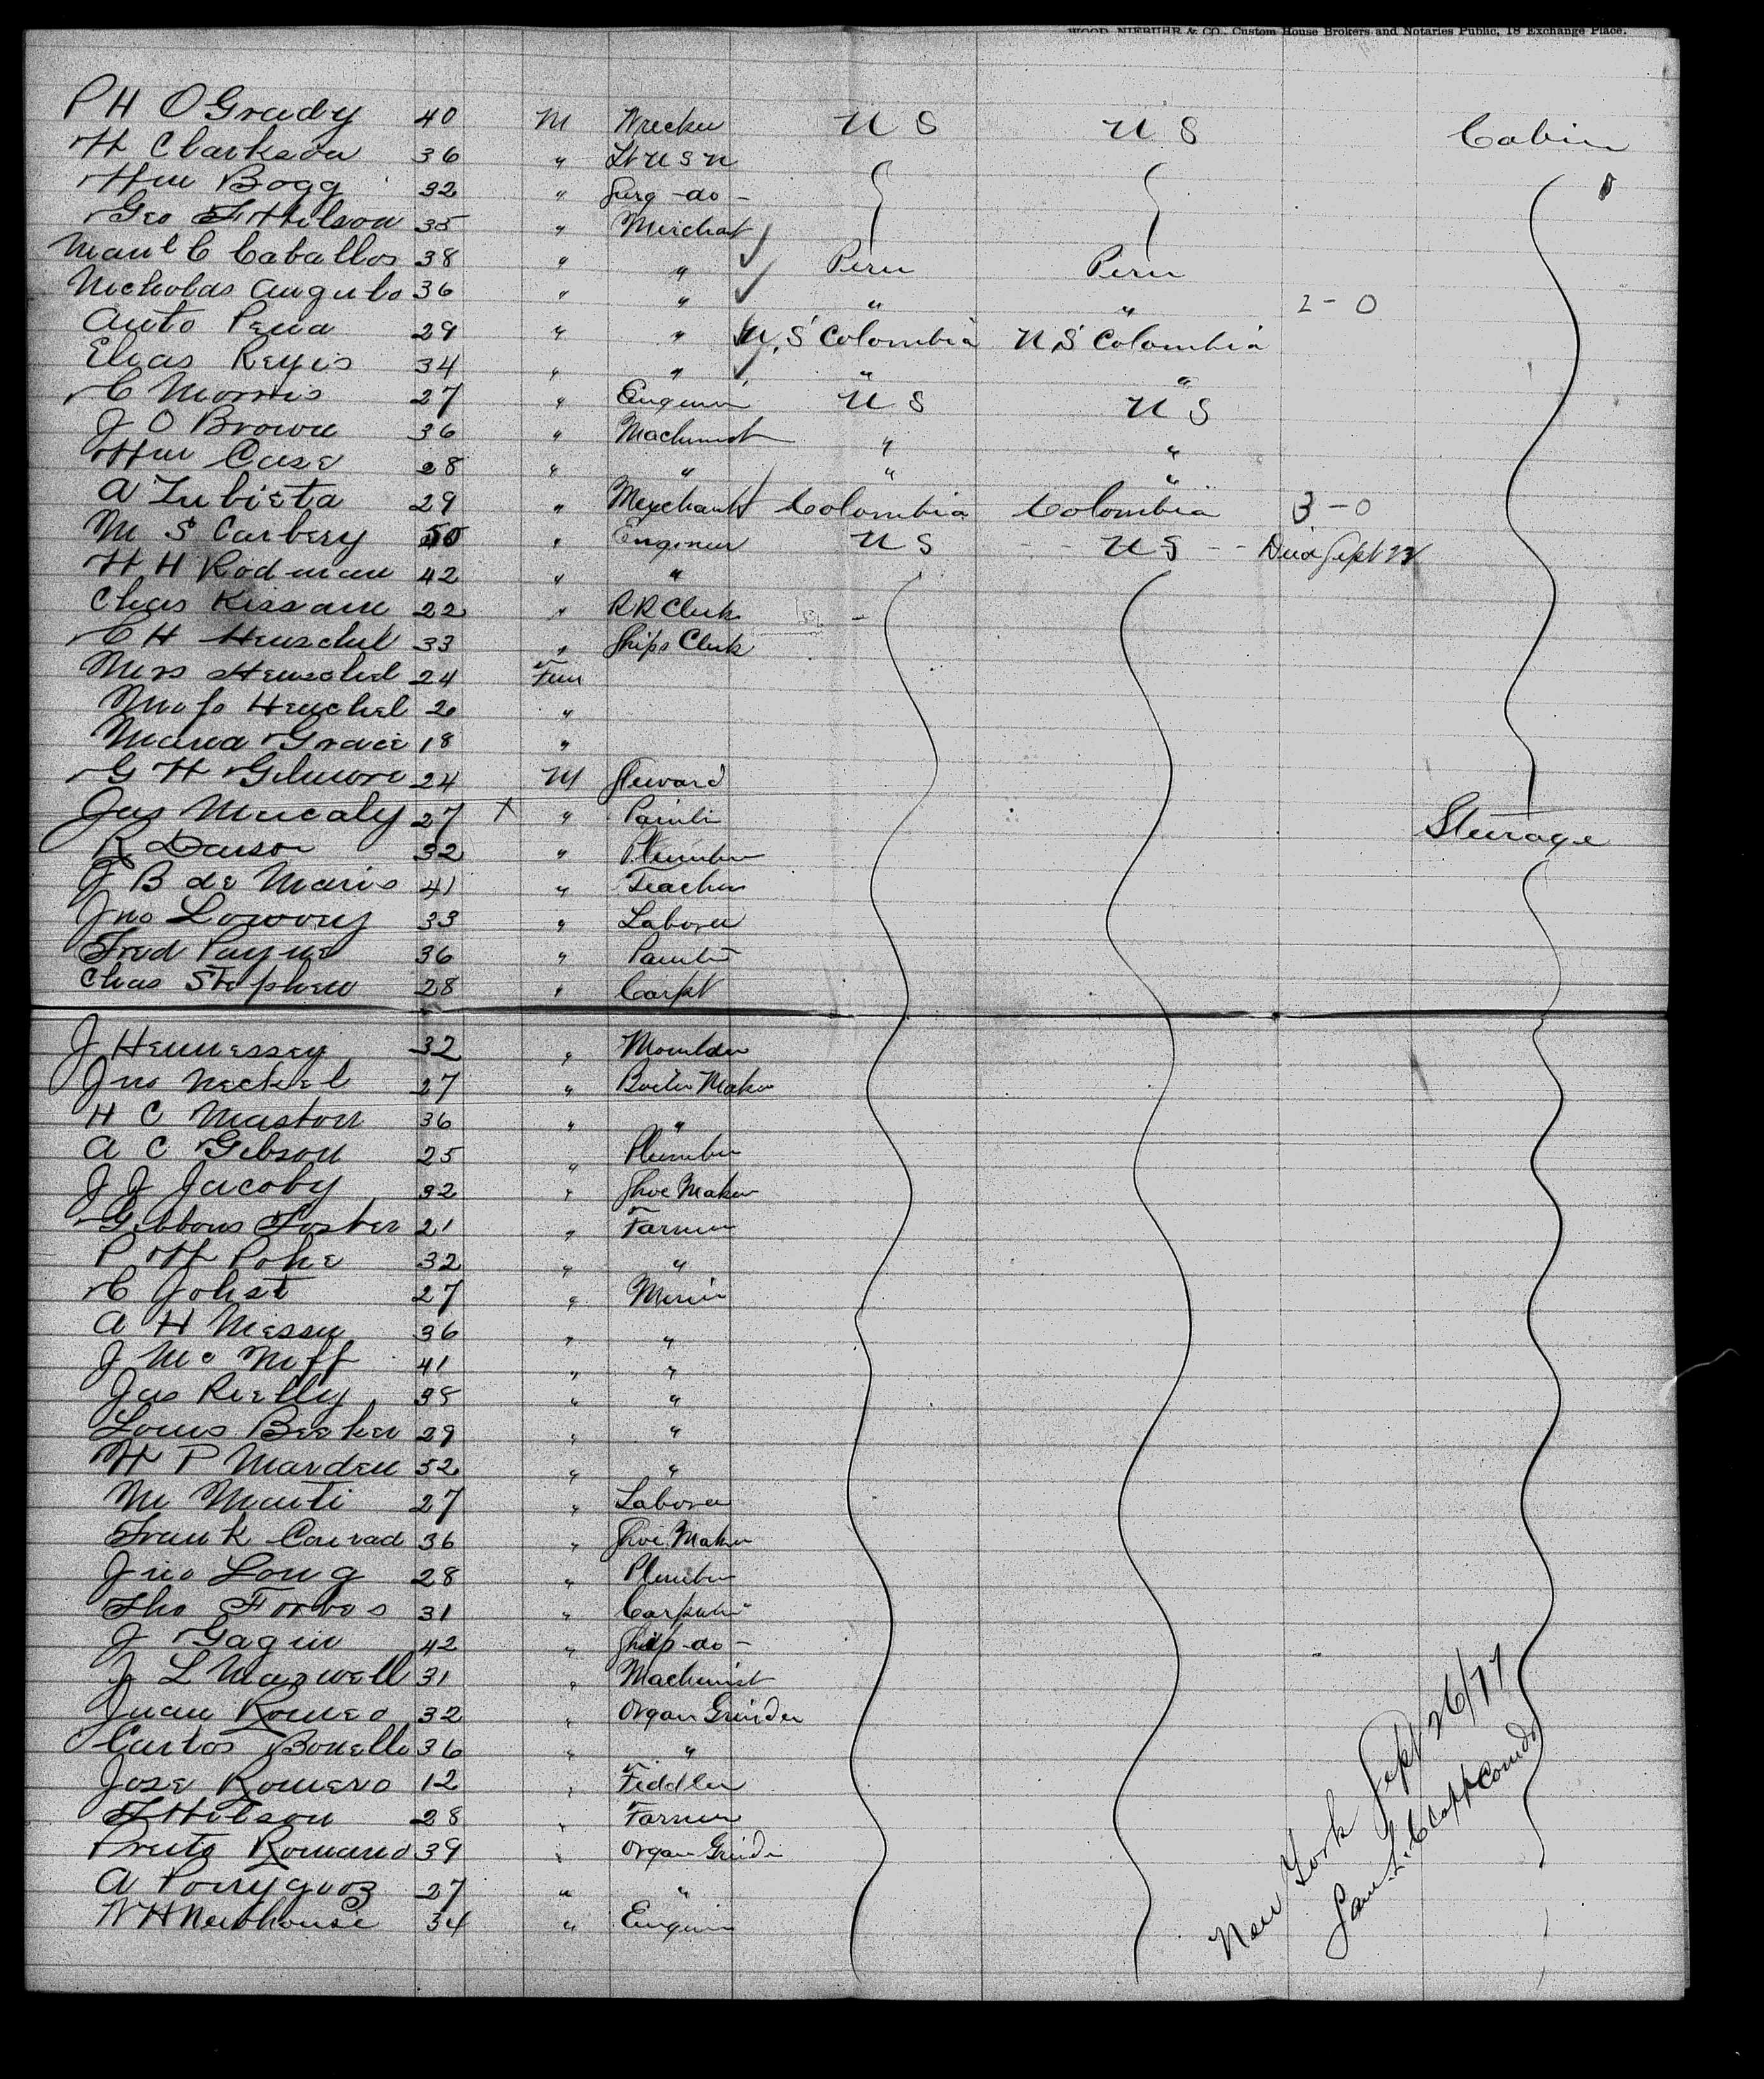 WOOD, NIEBUHR & CO., Custom House Brokers and Notaries Public, 18 Exchange Place.
P H O Grady 40 M Wrecker U S U S Cabin
H Clarkson 36 " Lt U S N
Wm Bogg 32 " Surg -do-
Geo F Wilson 35 " Merchat
Manl C Caballos 38 " " Peru Peru
Nicholas Angulo 36 " " " " 2-0
Anto Pena 29 " " U.S Colombia U S Colombia
Elias Reyes 34 " " " "
C Morris 27 " Engineer U S U S
J O Brown 36 " Machinist " "
Wm Case 28 " " " "
A Zubieta 29 " Merchant Colombia Colombia 3-0
M S Carbery 50 " Engineer U S -- U S -- Died Sept 23
H H Rodman 42 " "
Chas Kissam 22 " R R Clerk
C H Henschel 33 " Ships Clerk
Mrs Henschel 24 Fem
Henschel 2 "
Maria Grace 18 "
G H Gilmore 24 M Steward
Jas Mucaly 27 X " Painter
R Dawson 32 " Plumber
J B de Maris 41 " Teacher
Jno Lowory 33 " Laborer
Fred Payne 36 " Painter
Chas Stephen 28 " Carpt
Steerage
J Hennessey 32 " Moulder
Jno Neckel 27 " Boiler Maker
H C Maston 36 " "
A C Gibson 25 " Plumber
J J Jacoby 32 " Shoe Maker
Gibbons Foster 21 " Farmer
P W Pohe 32 " "
C Johst 27 " Miner
A H Messer 36 " "
J Mc Niff 41 " "
Jas Rielly 38 " "
Louis Becker 29 " "
H P Marden 52 " "
M Marti 27 " Laborer
Frank Conrad 36 " Shoe Maker
Jno Long 28 " Plumber
Tho Forbes 31 " Carpenter
J Gagin 42 " Ship -do-
J L Maxwell 31 " Machinist
Juan Romeo 32 " Organ Grinder
Carlos Bonelli 36 " "
Jose Romero 12 " Fiddler
F Wilson 28 " Farmer
Romano 39 " Organ Grinder
A 27 " "
W H Newhouse 34 " Engineer
New York Sept 26/77
Saml L Clapp Comdr